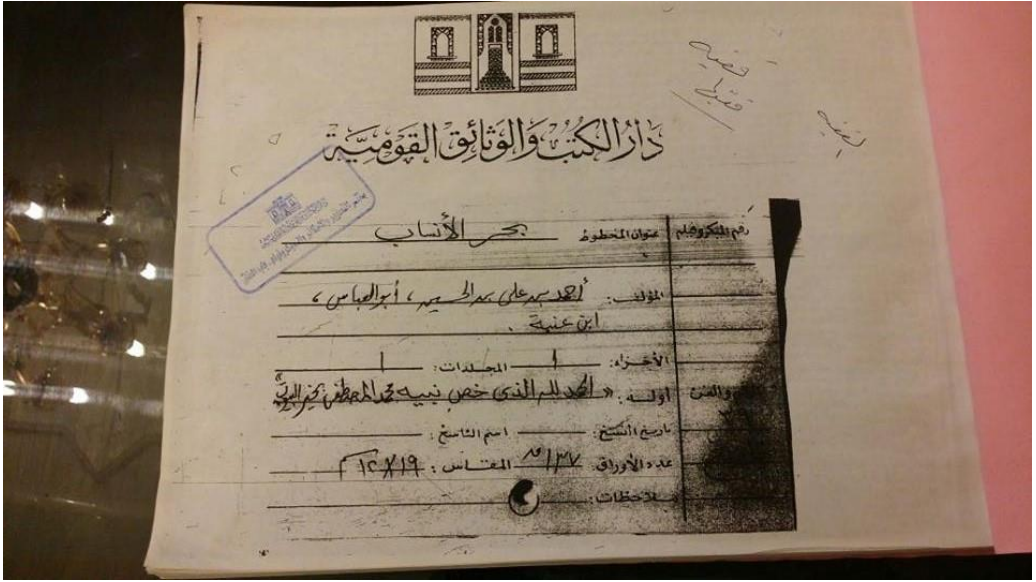 دَارُ الكُتُبِ وَالوَثَائِقِ القَوْمِيَّة
رقم الميكروفيلم عنوان المخطوط بحر الأنساب
المؤلف: أحمد بن علي بن الحسين، أبو العباس،
ابن عنبة.
الأجزاء: ١ المجلدات: ١
والفن أوله: «الحمد لله الذي خص نبيه محمد المصطفى بخير
تاريخ النسخ: اسم الناسخ:
عدد الأوراق ١٣٧ ق المقاس: ١٩×١٢ سم
ملاحظات: